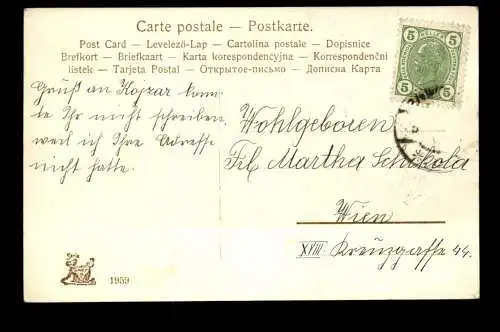 Carte postale — Postkarte.
Post Card — Levelező-Lap — Cartolina postale — Dopisnice
Brefkort — Briefkaart — Karta korespondencyjna — Korrespondenční
lístek — Tarjeta Postal — Открытое-письмо — Дописна Карта
5 HELLER 5
Gruß an Kojzar konn-
te Ihr nicht schreiben
weil ich Ihre Adresse
nicht hatte.
Wohlgeboren
Frl Martha Schikola
Wien
XVIII. Kreuzgasse 44.
1959